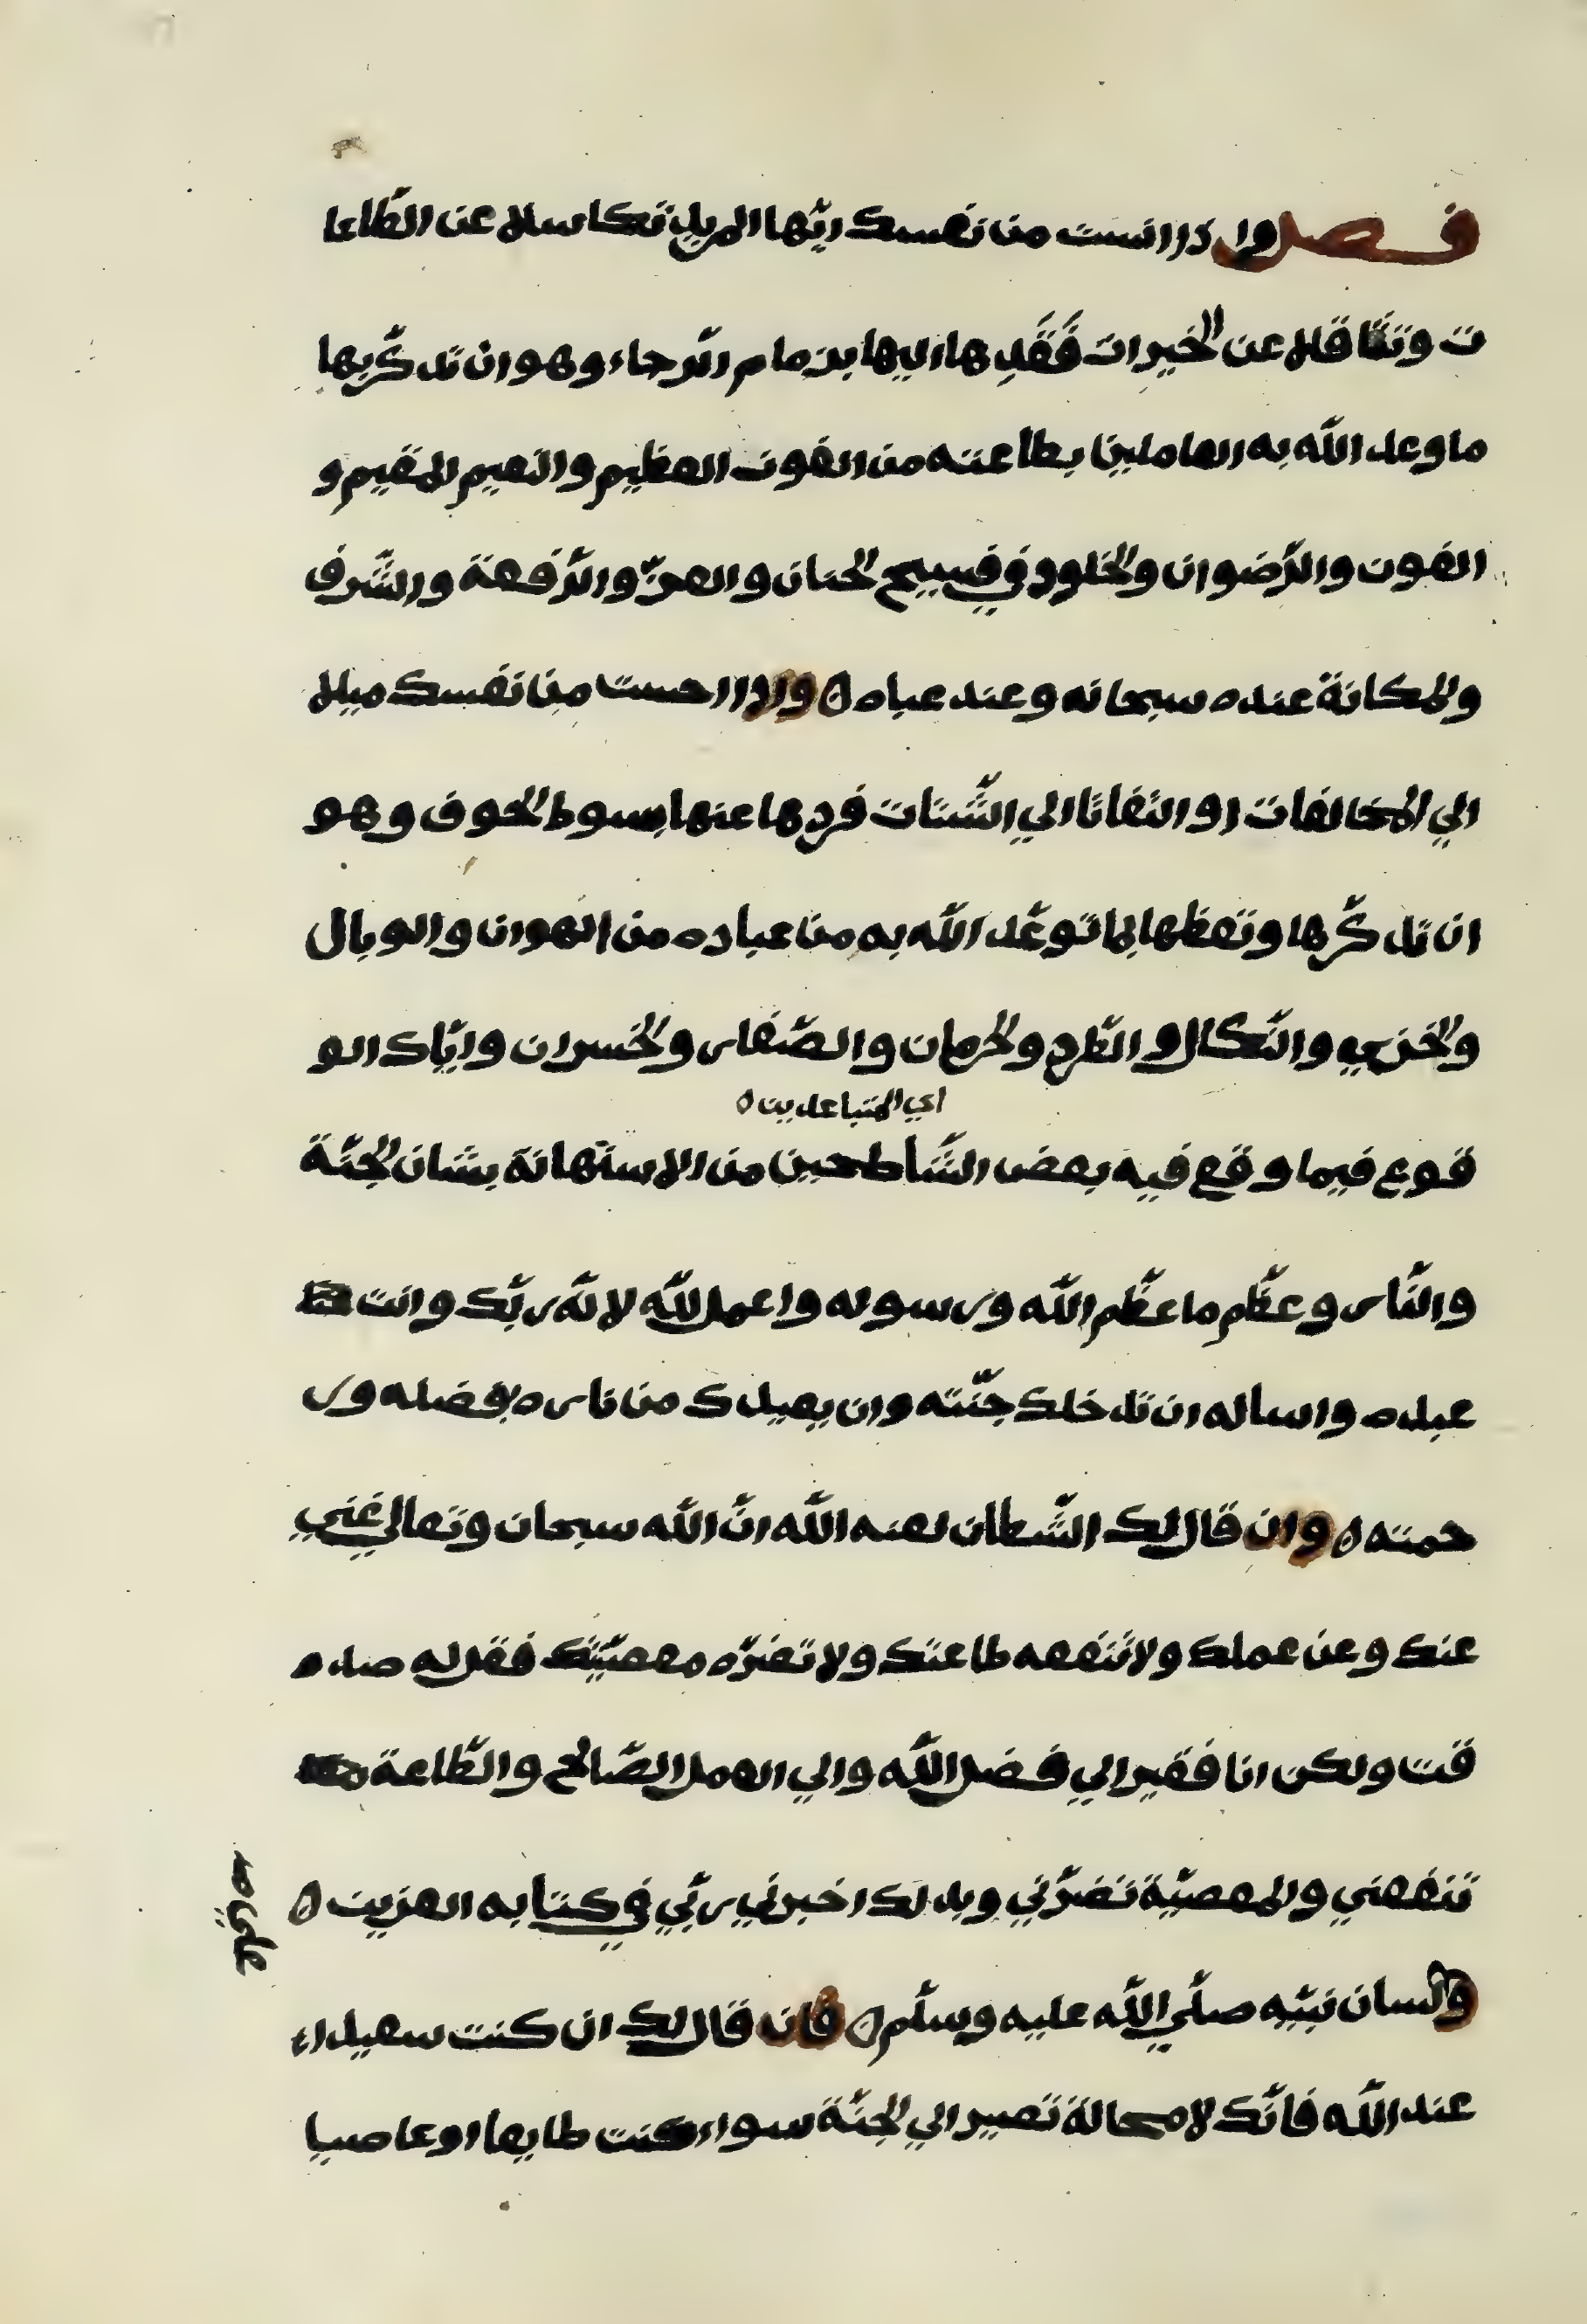 فصل واذا انست من نفسك ايّها المريد تكاسلا عن الطّاعا
ت وتثاقلا عن الخيرات فَقَدِها اليها بزمام الرّجاء وهو ان تذكّر بها
ما وعد اللّه به العاملين بطاعته من الفوز العظيم والنعيم المقيم و
الفوز والرّضوان والخلود في فسيح الجنان والعزّ والرّفعة والشّرف
والمكانة عنده سبحانه وعند عباه ۞ واذا احست من نفسك ميلا
الي المخالفات او التفاتا الي الشّتات فردها عنها بسوط الخوف وهو
ان تذكّرها وتعظها بما توعّد اللّه به من عباده من الهوان والوبال
والخزي والنّكال والطّرد والحرمان والصّغار والخسران وايّاك الو
اي المتباعدين ۞
قوع فيما وقع فيه بعض الشّاطحين من الاستهانة بشان الجنّة
والنّار وعظّم ما عظّم اللّه ورسوله واعمل للّه لانّه ربّك وانت
عبده واساله ان تدخلك جنّته وان يعيدك من ناره بفضله ور
حمته ۞ وان قال لك الشّطان لعنه اللّه انّ اللّه سبحان وتعالي غني
عنك وعن عملك ولا تنفعه طاعتك ولا تضرّه معصيّتك فقل له صد
قت ولكن انا فقير الي فضل اللّه والي العمل الصّالح والطّاعة
تنفعني والمعصيّة تضرّني وبذلك اخبرني ربّي في كتابه العزيز ۞
علي
ولسان نبيّه صلّي اللّه عليه وسلّم ۞ فان قال لك ان كنت سعيدا
عند اللّه فانّك لا محالة تصير الي الجنّة سواء كنت طايعا او عاصيا